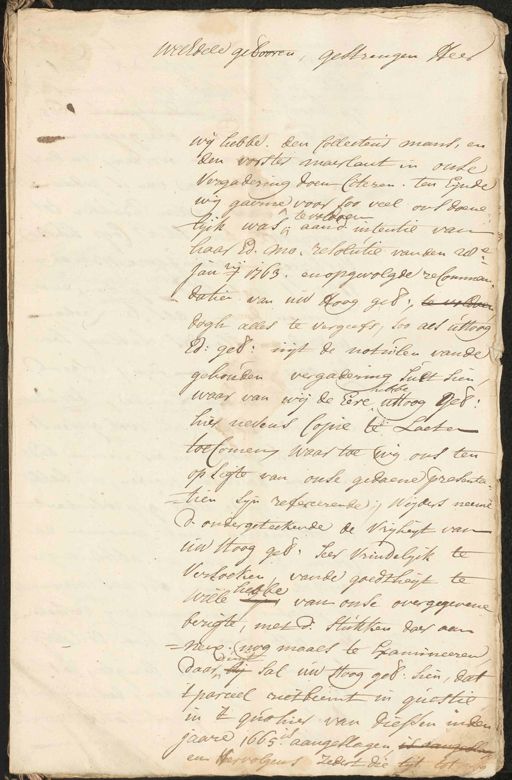 weledele gebooren, gestrengen Heer
wij hebbe den Collecteur mans, en
den vorster maerlant in onse
vergadering doen Citeren. ten Eynde
wij gaerne voor soo veel ons doene
te voldoen
lijk was, aand intentie van
haar Ed. Mo. resolutie vanden 20e
Janrij 1763. en opgevolgde recomman
datien van uw Hoog geb:,
dogh alles te vergeefs, soo als uHoog
Ed: geb: uijt de notulen vande
gehouden vergadering sult sien,
waar van wij de Eere hebbe uHoog Geb:
hier nevens Copie te Laeten
toeComen waar toe wij ons ten
opsigte van onse gedaene presenta
tien sijn refereerende; Wijders neemt
d. ondergeteekende de Vrijheyt van
uw Hoog geb: seer Vrindelijk te
versoeken vande goedtheijt te
wille hebbe van onse overgegevene
berigte, met d. Stukken daer aen
nex, nog maals te Examineeren,
daar uijt sal uw Hoog geb: sien, dat
t parceel rietbeemt in questie
in 't quohier van Diessen inden
jaare 1665 is aangeslagen
en vervolgens zedert die tijt